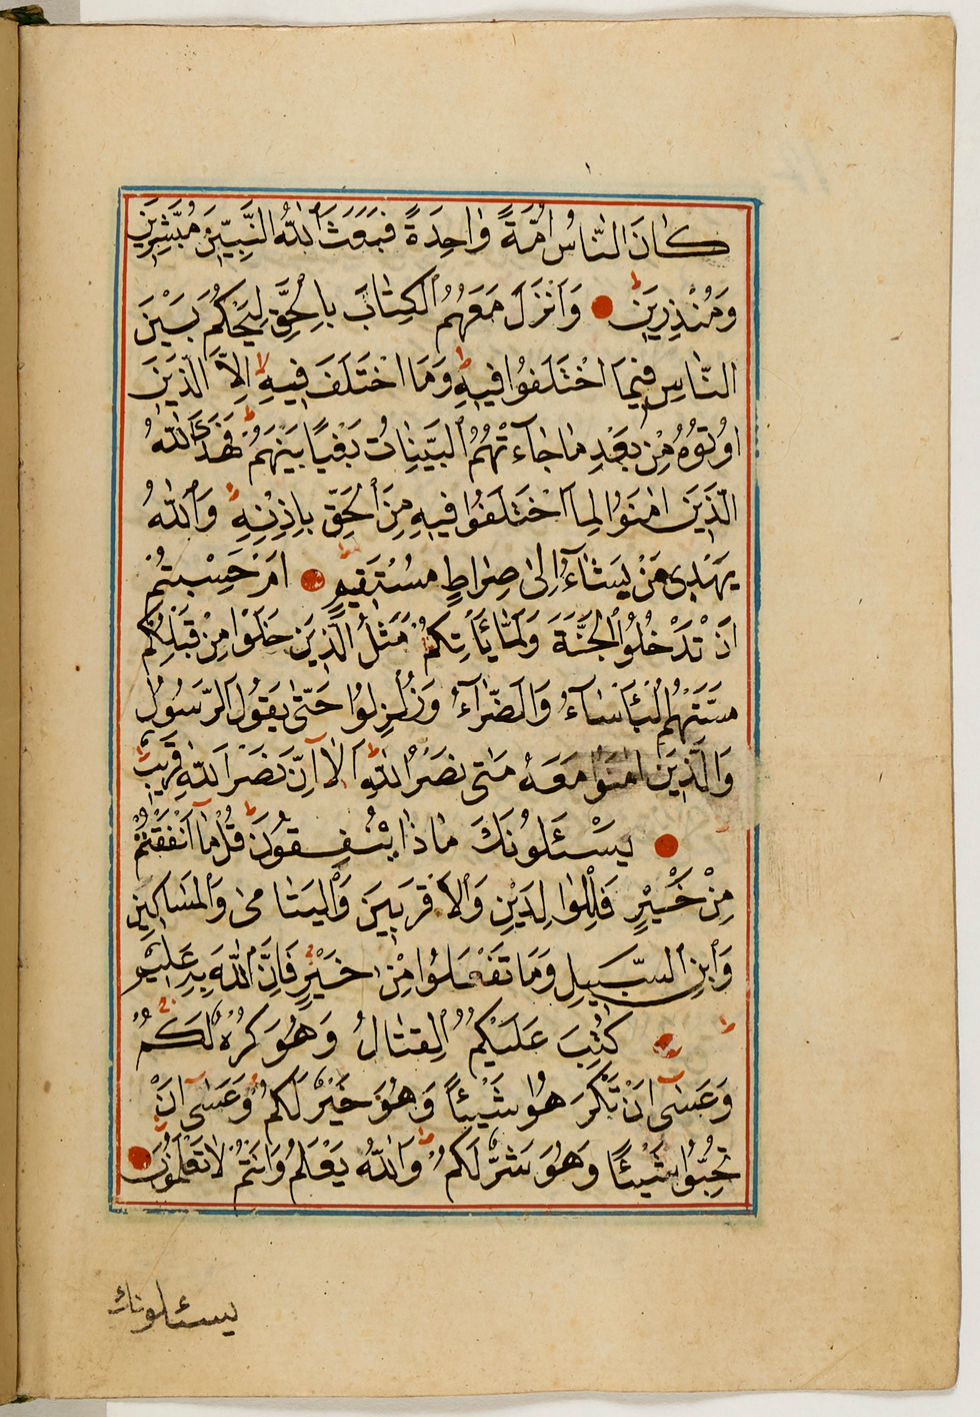 كَانَ النَّاسُ اُمَّةً وَاحِدَةً فَبَعَثَ اللّٰهُ النَّبِيّٖنَ مُبَشِّرٖينَ
وَمُنْذِرٖينَ وَاَنْزَلَ مَعَهُمُ الْكِتَابَ بِالْحَقِّ لِيَحْكُمَ بَيْنَ
النَّاسِ فٖيمَا اخْتَلَفُوا فٖيهِ وَمَا اخْتَلَفَ فٖيهِ اِلَّا الَّذٖينَ
اُوتُوهُ مِنْ بَعْدِ مَا جَآءَتْهُمُ الْبَيِّنَاتُ بَغْيًا بَيْنَهُمْ فَهَدَى اللّٰهُ
الَّذٖينَ اٰمَنُوا لِمَا اخْتَلَفُوا فٖيهِ مِنَ الْحَقِّ بِاِذْنِهٖ وَاللّٰهُ
يَهْدٖى مَنْ يَشَآءُ اِلٰى صِرَاطٍ مُسْتَقٖيمٍ اَمْ حَسِبْتُمْ
اَنْ تَدْخُلُوا الْجَنَّةَ وَلَمَّا يَأْتِكُمْ مَثَلُ الَّذٖينَ خَلَوْا مِنْ قَبْلِكُمْ
مَسَّتْهُمُ الْبَأْسَآءُ وَالضَّرَّآءُ وَزُلْزِلُوا حَتّٰى يَقُولَ الرَّسُولُ
وَالَّذٖينَ اٰمَنُوا مَعَهُ مَتٰى نَصْرُ اللّٰهِ اَلَآ اِنَّ نَصْرَ اللّٰهِ قَرٖيبٌ
يَسْـَٔلُونَكَ مَاذَا يُنْفِقُونَ قُلْ مَآ اَنْفَقْتُمْ
مِنْ خَيْرٍ فَلِلْوَالِدَيْنِ وَالْاَقْرَبٖينَ وَالْيَتَامٰى وَالْمَسَاكٖينِ
وَابْنِ السَّبٖيلِ وَمَا تَفْعَلُوا مِنْ خَيْرٍ فَاِنَّ اللّٰهَ بِهٖ عَلٖيمٌ
كُتِبَ عَلَيْكُمُ الْقِتَالُ وَهُوَ كُرْهٌ لَكُمْ
وَعَسٰٓى اَنْ تَكْرَهُوا شَيْئًا وَهُوَ خَيْرٌ لَكُمْ وَعَسٰٓى اَنْ
تُحِبُّوا شَيْئًا وَهُوَ شَرٌّ لَكُمْ وَاللّٰهُ يَعْلَمُ وَاَنْتُمْ لَا تَعْلَمُونَ
يسئلونك